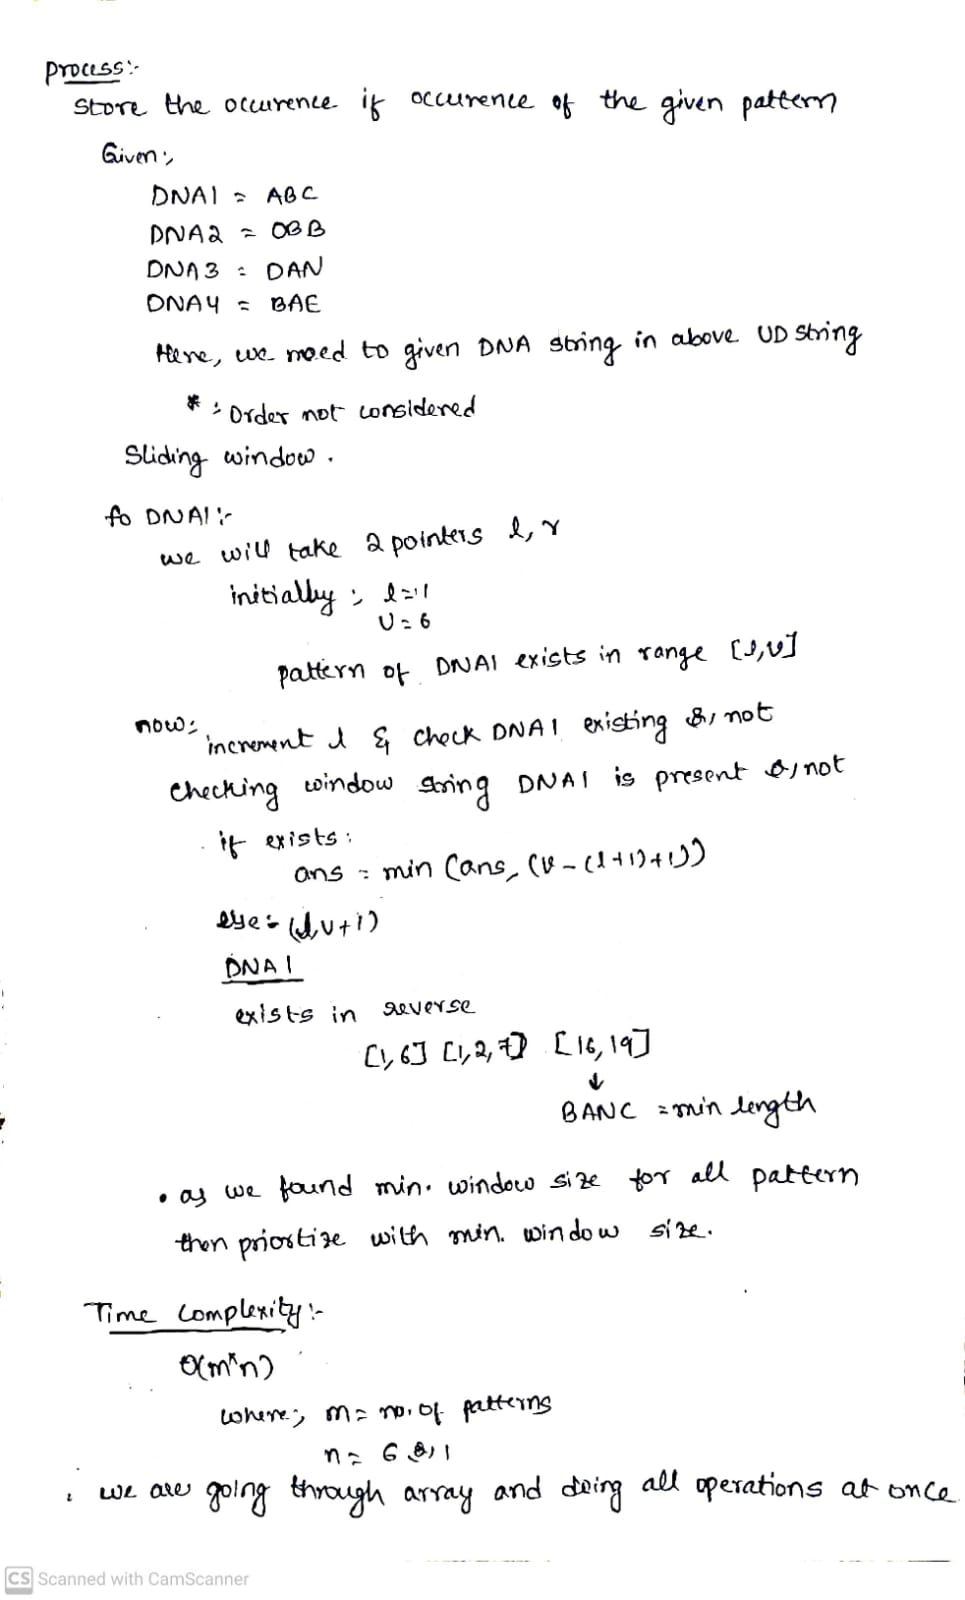 Process:-
Store the occurence if occurence of the given pattern
Given :,
DNA1 = ABC
DNA2 = OBB
DNA3 = DAN
DNA4 = BAE
Here, we need to given DNA string in above UD string
* : Order not considered
Sliding window .
fo DNA1 :-
we will take 2 pointers l, r
initially ; l=1
U = 6
pattern of DNA1 exists in range [l,u]
now:
increment l & check DNA1 existing or not
checking window string DNA1 is present or not
if exists :
ans = min (ans, (u - (l+1)+1))
else : (l,u+1)
DNA1
exists in reverse
[1,6] [1,2,7] [16,19]
↓
BANC = min length
• as we found min. window size for all pattern
then priortize with min. window size.
Time Complexity :-
O(m*n)
where ; m = no. of patterns
n =
we are going through array and doing all operations at once
CS Scanned with CamScanner